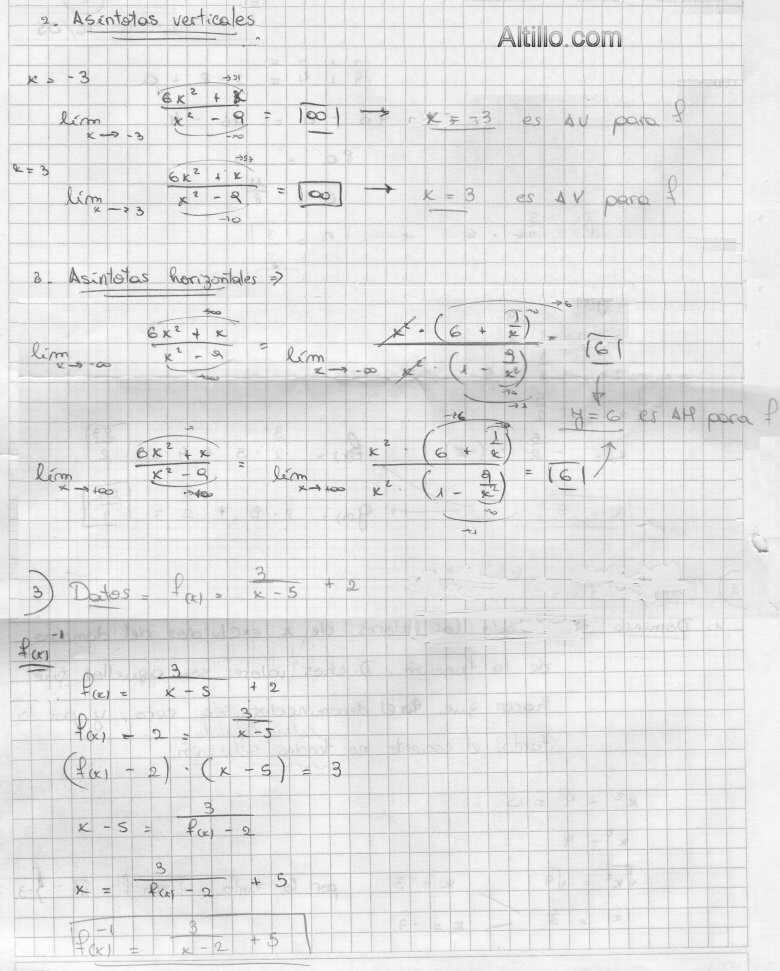 2. Asíntotas verticales
Altillo.com
x = -3
lím x→-3 (6x² + x)/(x² - 9) = |∞| → x = -3 es AV para f
x = 3
lím x→3 (6x² + x)/(x² - 9) = |∞| → x = 3 es AV para f
3. Asíntotas horizontales ⇒
lím x→-∞ (6x² + x)/(x² - 9) = lím x→-∞ x² · (6 + 1/x) / x² · (1 - 9/x²) = |6|
y = 6 es AH para f
lím x→+∞ (6x² + x)/(x² - 9) = lím x→+∞ x² · (6 + 1/x) / x² · (1 - 9/x²) = |6|
3) Datos = f(x) = 3/(x - 5) + 2
f(x)⁻¹
f(x) = 3/(x - 5) + 2
f(x) - 2 = 3/(x-5)
(f(x) - 2) · (x - 5) = 3
x - 5 = 3/(f(x) - 2)
x = 3/(f(x) - 2) + 5
f(x)⁻¹ = 3/(x - 2) + 5